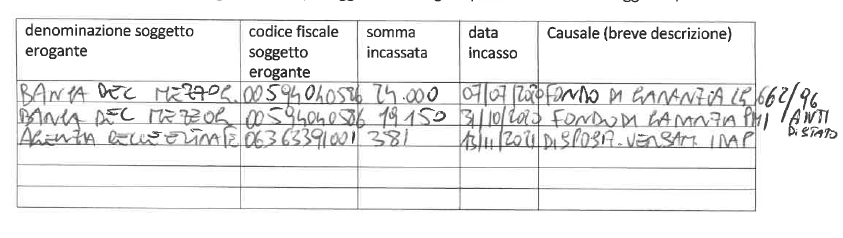 denominazione soggetto erogante codice fiscale soggetto erogante somma incassata data incasso Causale (breve descrizione)
BANCA DEL MEZZOG. 00594040586 24.000 07/07/2020 FONDO DI GARANZIA LG 662/96
BANCA DEL MEZZOG 00594040586 19150 31/10/2020 FONDO DI GARANZIA PMI AIUTI DI STATO
AGENZIA DELLE ENTRATE 06363391001 381 13/11/2021 VERSAM. IMP